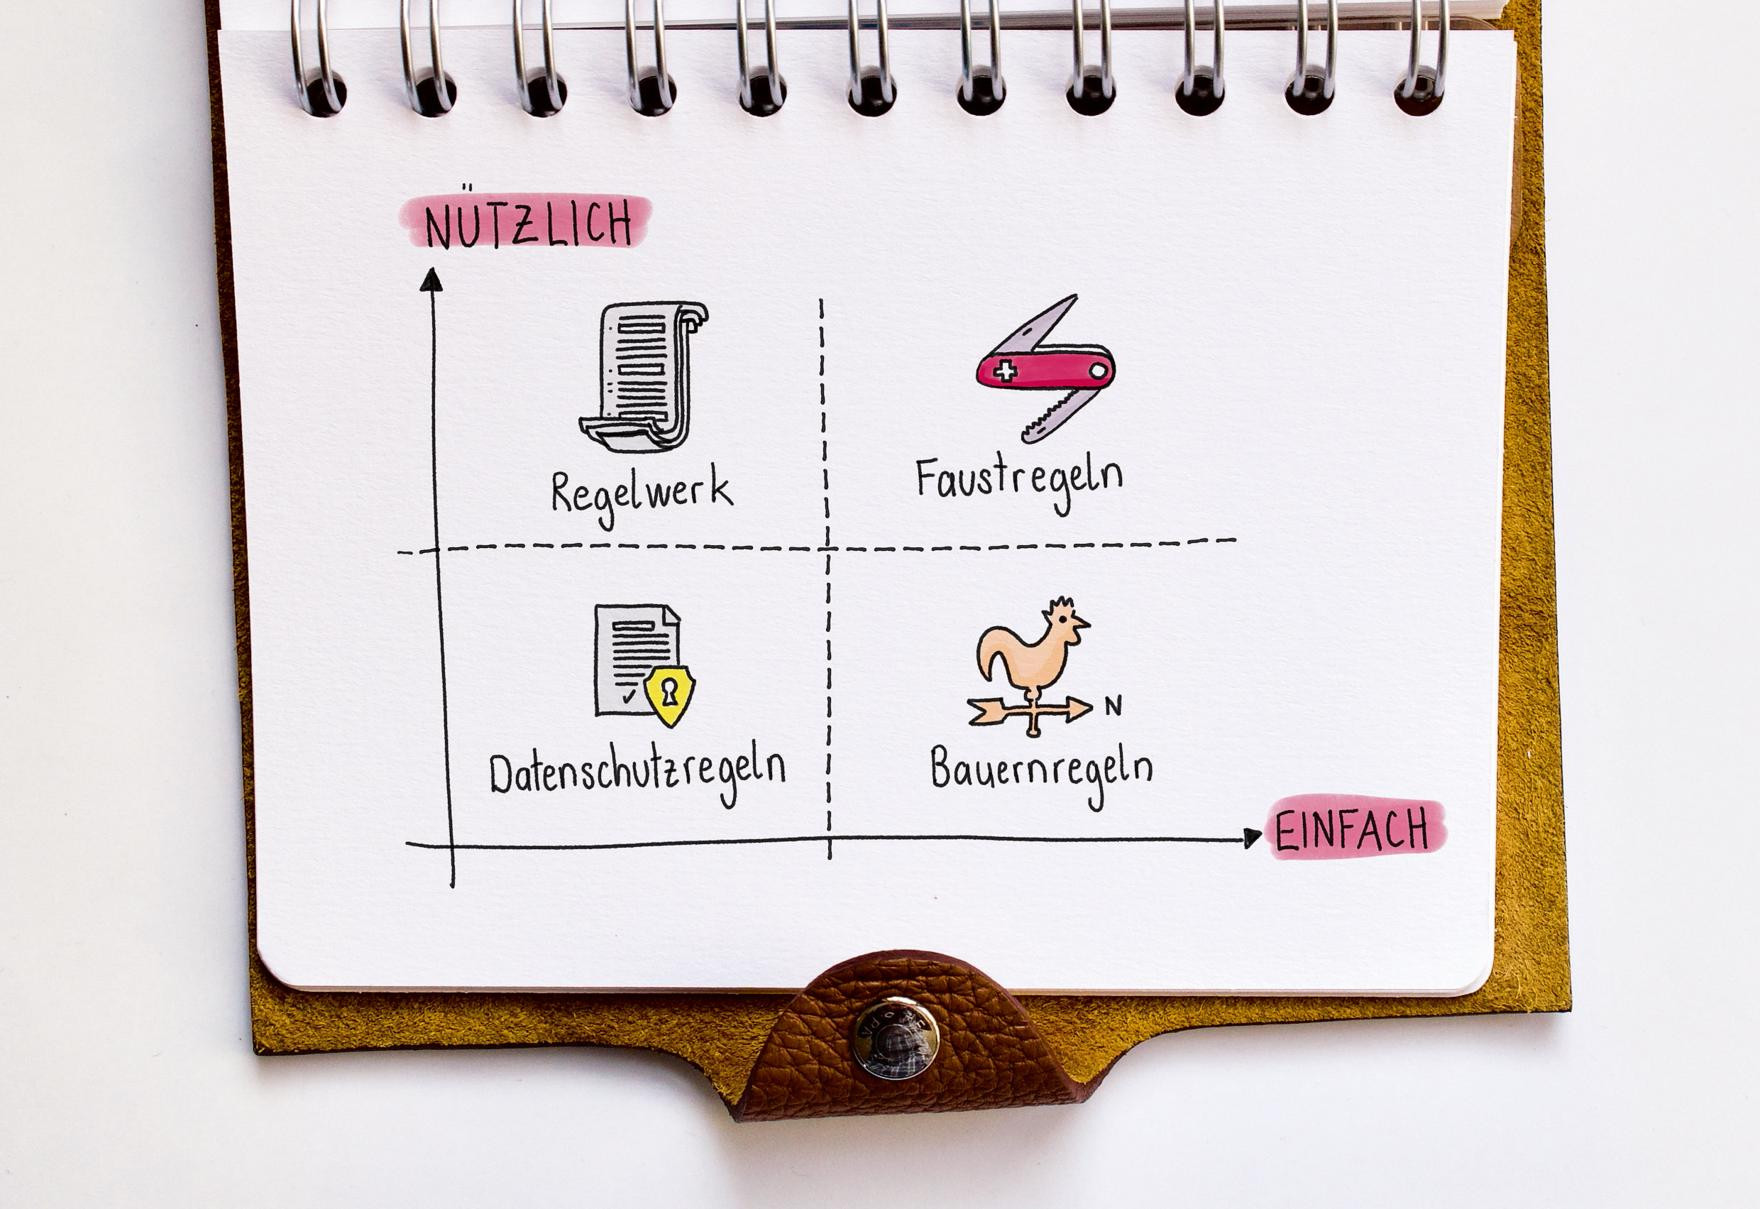 NÜTZLICH
Regelwerk
Faustregeln
Datenschutzregeln
N
Bauernregeln
EINFACH